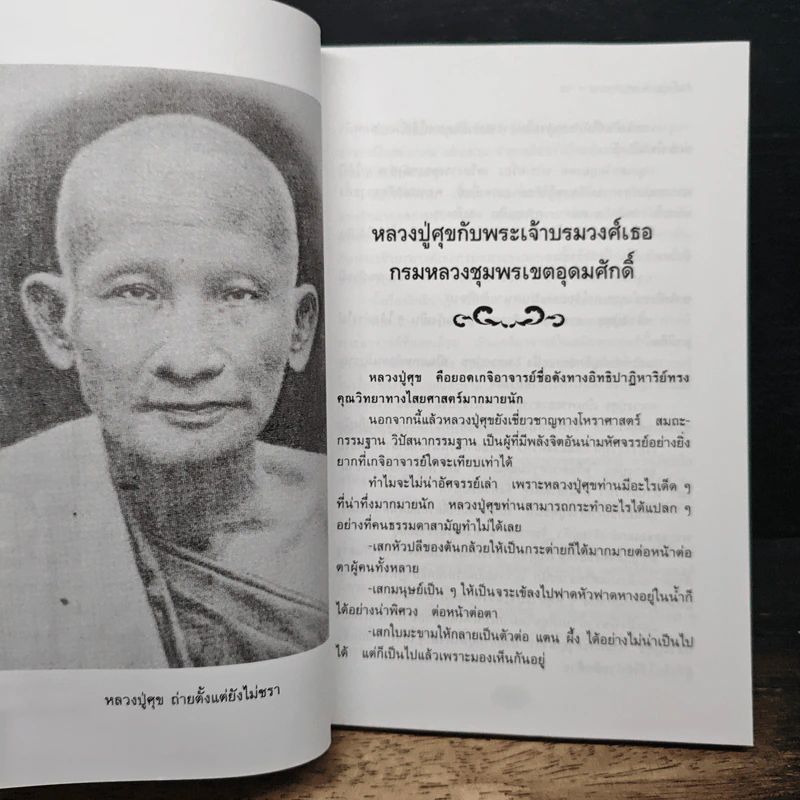 หลวงปู่ศุข ถ่ายตั้งแต่ยังไม่ชรา
หลวงปู่ศุขกับพระเจ้าบรมวงศ์เธอ
กรมหลวงชุมพรเขตอุดมศักดิ์
หลวงปู่ศุข คือยอดเกจิอาจารย์ชื่อดังทางอิทธิปาฏิหาริย์ทรง
คุณวิทยาทางไสยศาสตร์มากมายนัก
นอกจากนี้แล้วหลวงปู่ศุขยังเชี่ยวชาญทางโหราศาสตร์ สมถะ-
กรรมฐาน วิปัสนากรรมฐาน เป็นผู้ที่มีพลังจิตอันน่ามหัศจรรย์อย่างยิ่ง
ยากที่เกจิอาจารย์ใดจะเทียบเท่าได้
ทำไมจะไม่น่าอัศจรรย์เล่า เพราะหลวงปู่ศุขท่านมีอะไรเด็ด ๆ
ที่น่าทึ่งมากมายนัก หลวงปู่ศุขท่านสามารถกระทำอะไรได้แปลก ๆ
อย่างที่คนธรรมดาสามัญทำไม่ได้เลย
-เสกหัวปลีของต้นกล้วยให้เป็นกระต่ายก็ได้มากมายต่อหน้าต่อ
ตาผู้คนทั้งหลาย
-เสกมนุษย์เป็น ๆ ให้เป็นจระเข้ลงไปฟาดหัวฟาดหางอยู่ในน้ำก็
ได้อย่างน่าพิศวง ต่อหน้าต่อตา
-เสกใบมะขามให้กลายเป็นตัวต่อ แตน ผึ้ง ได้อย่างไม่น่าเป็นไป
ได้ แต่ก็เป็นไปแล้วเพราะมองเห็นกันอยู่